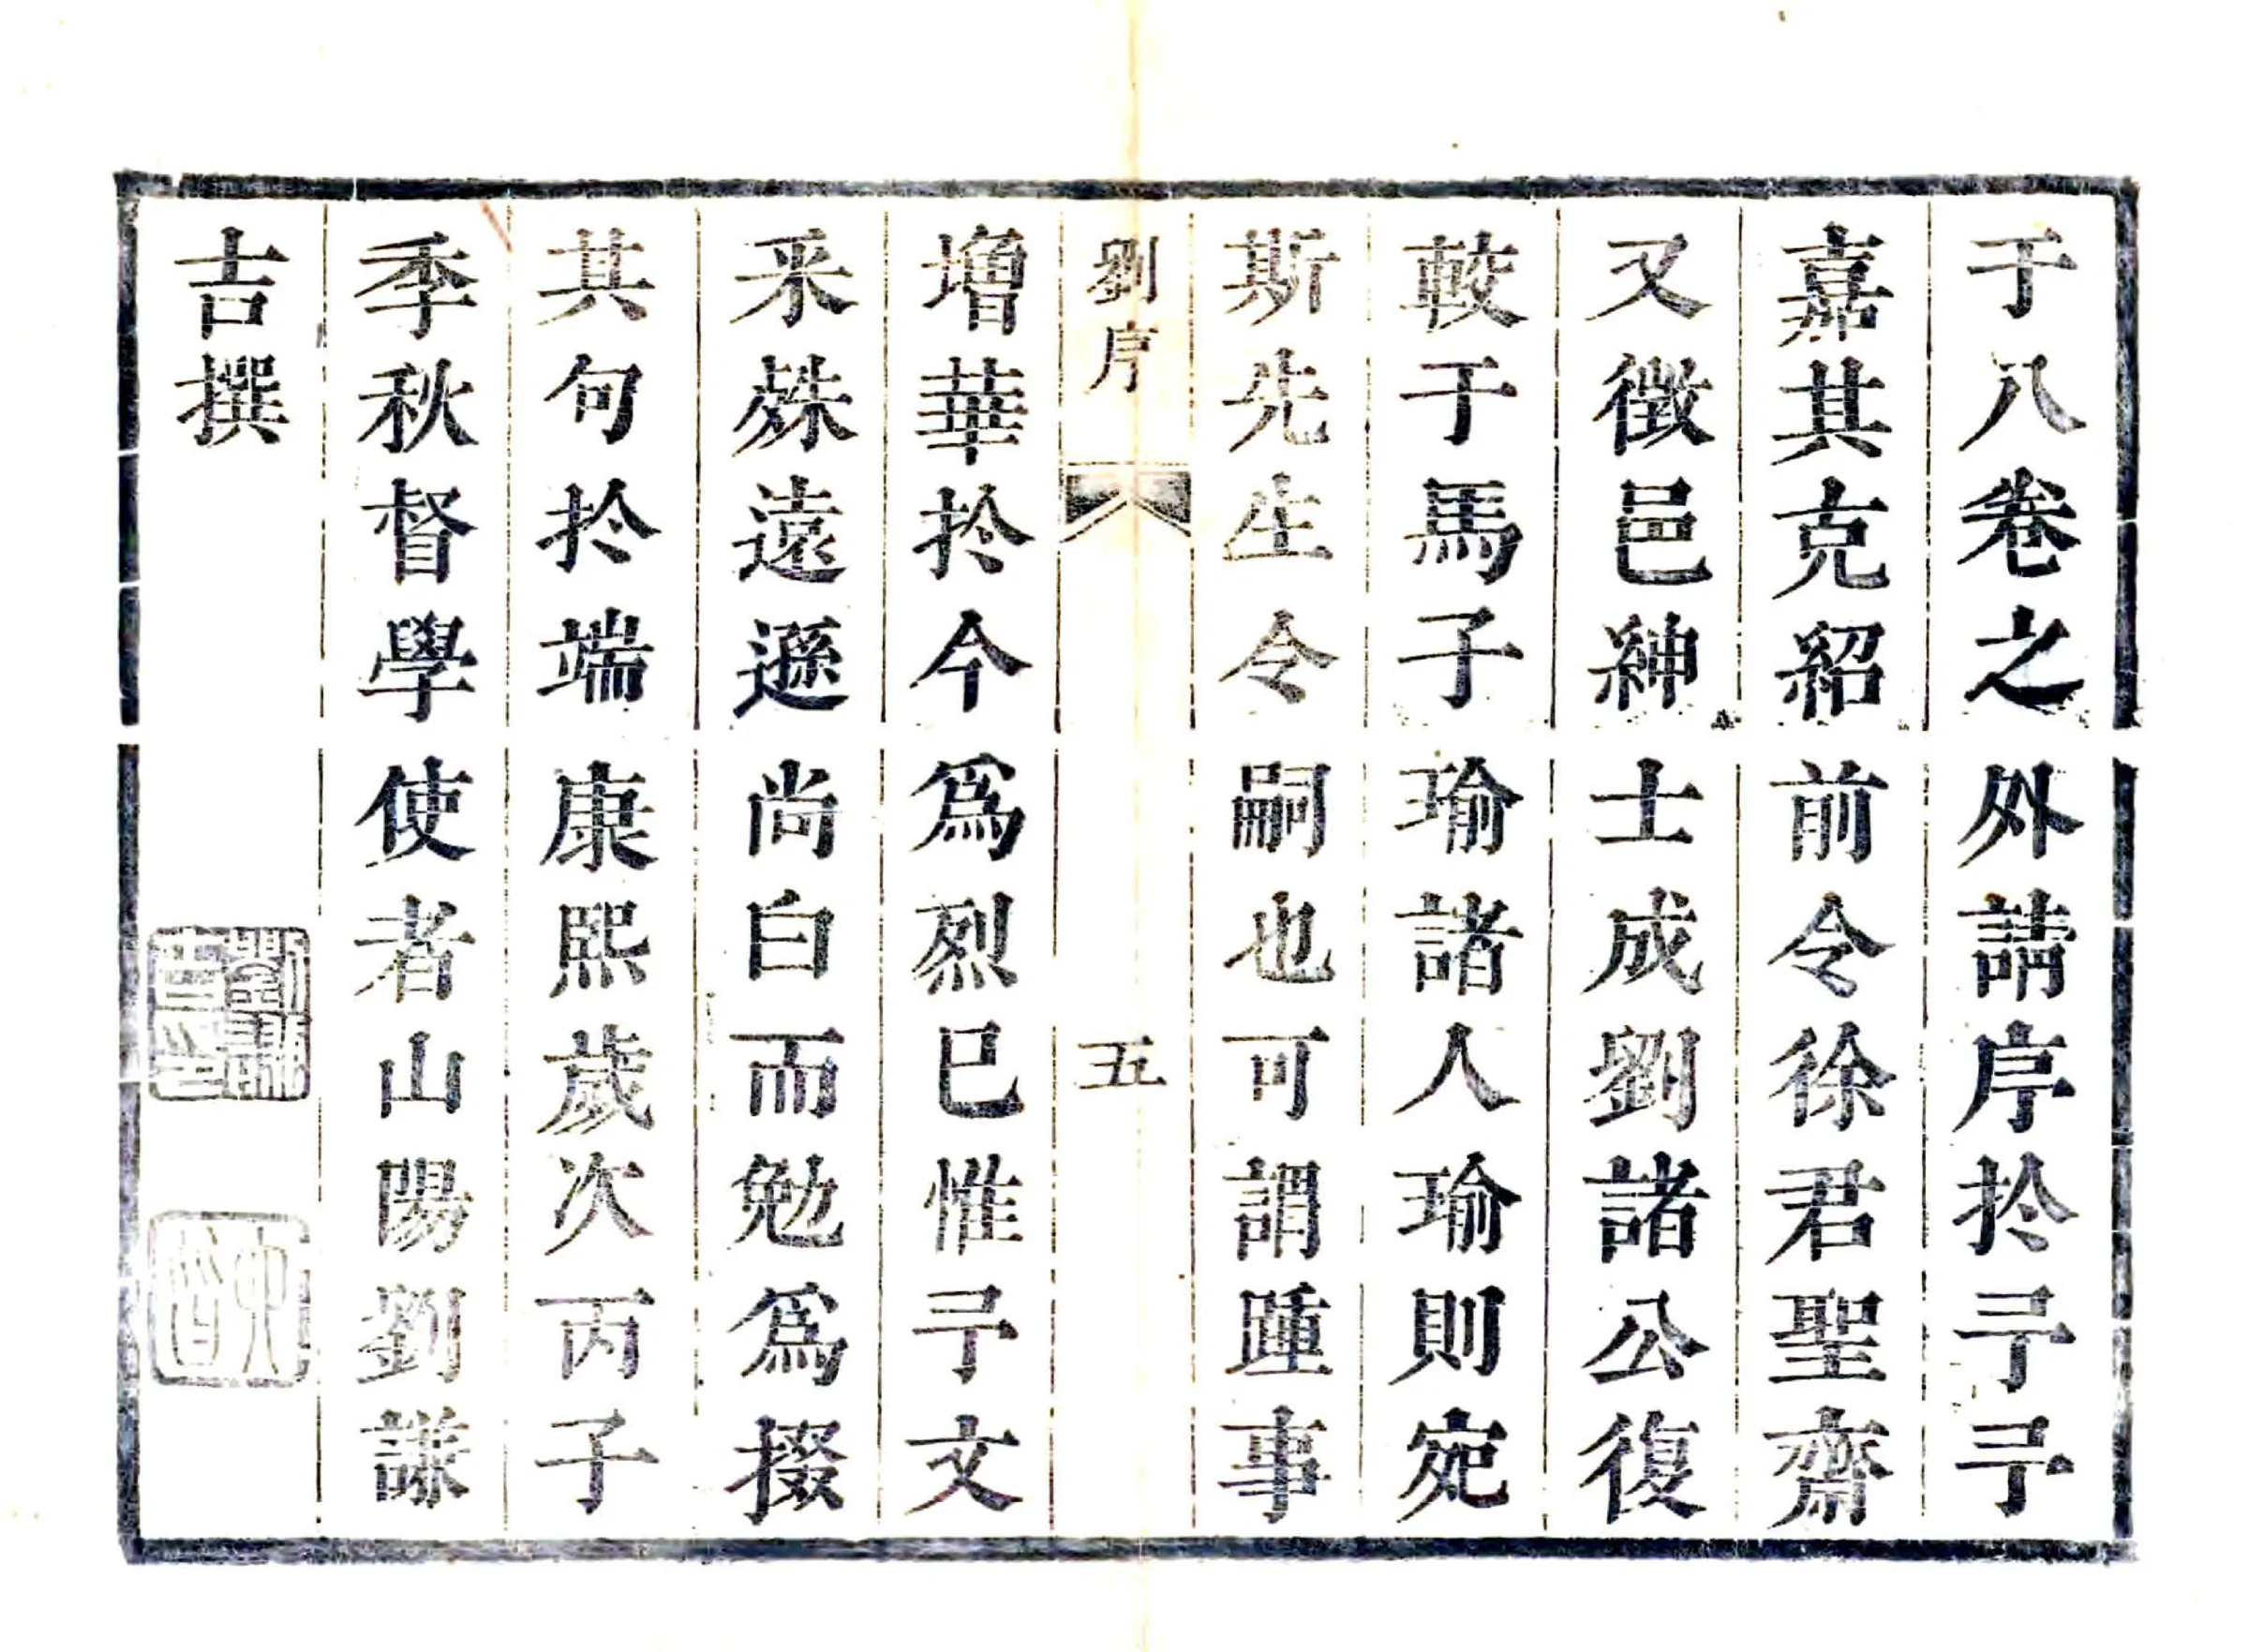 于八卷之外請序於予予
嘉其克紹前令徐君聖齋
又徵邑紳士成劉諸公復
較于馬子瑜諸人瑜則宛
斯先生令嗣也可謂踵事
劉序 五
增華於今爲烈已惟予文
采殊遠遜尚白而勉爲掇
其句於端康熙歲次丙子
季秋督學使者山陽劉謙
吉撰
劉謙吉印
六皆